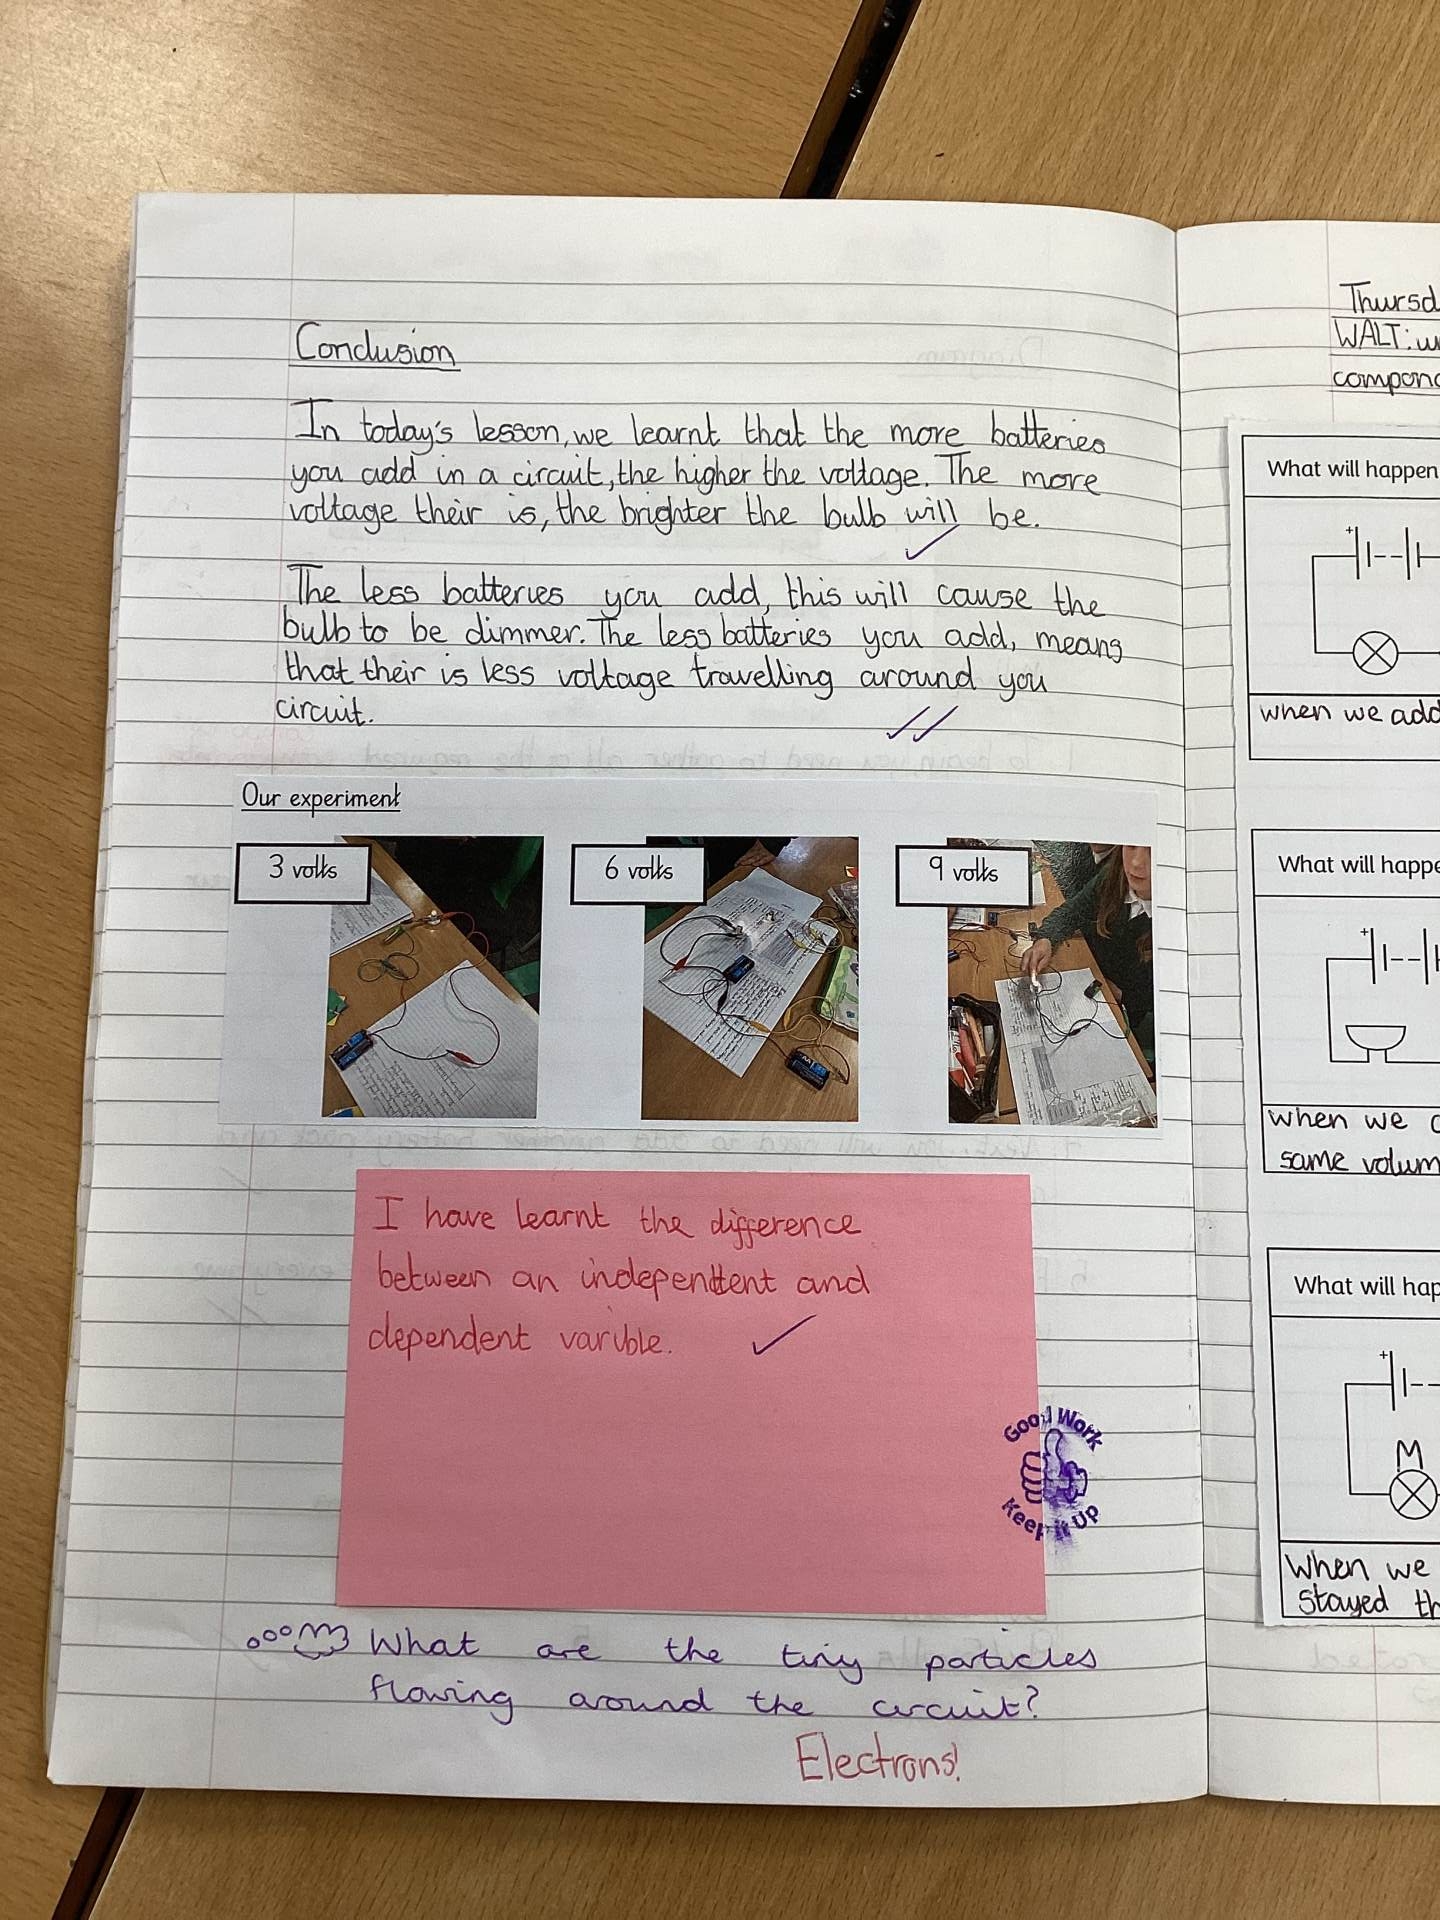 Conclusion
In today's lesson, we learnt that the more batteries
you add in a circuit, the higher the voltage. The more
voltage their is, the brighter the bulb will be.
The less batteries you add, this will cause the
bulb to be dimmer. The less batteries you add, means
that their is less voltage travelling around you
circuit.
Our experiment
3 volts
6 volts
9 volts
I have learnt the difference
between an independent and
dependent varible.
Good Work
Keep it Up
What are the tiny particles
flowing around the circuit?
Electrons!
Thursd
WALT: u
compon
What will happen
+
when we add
What will happe
+
when we
same volum
What will hap
+
M
when we
stayed th